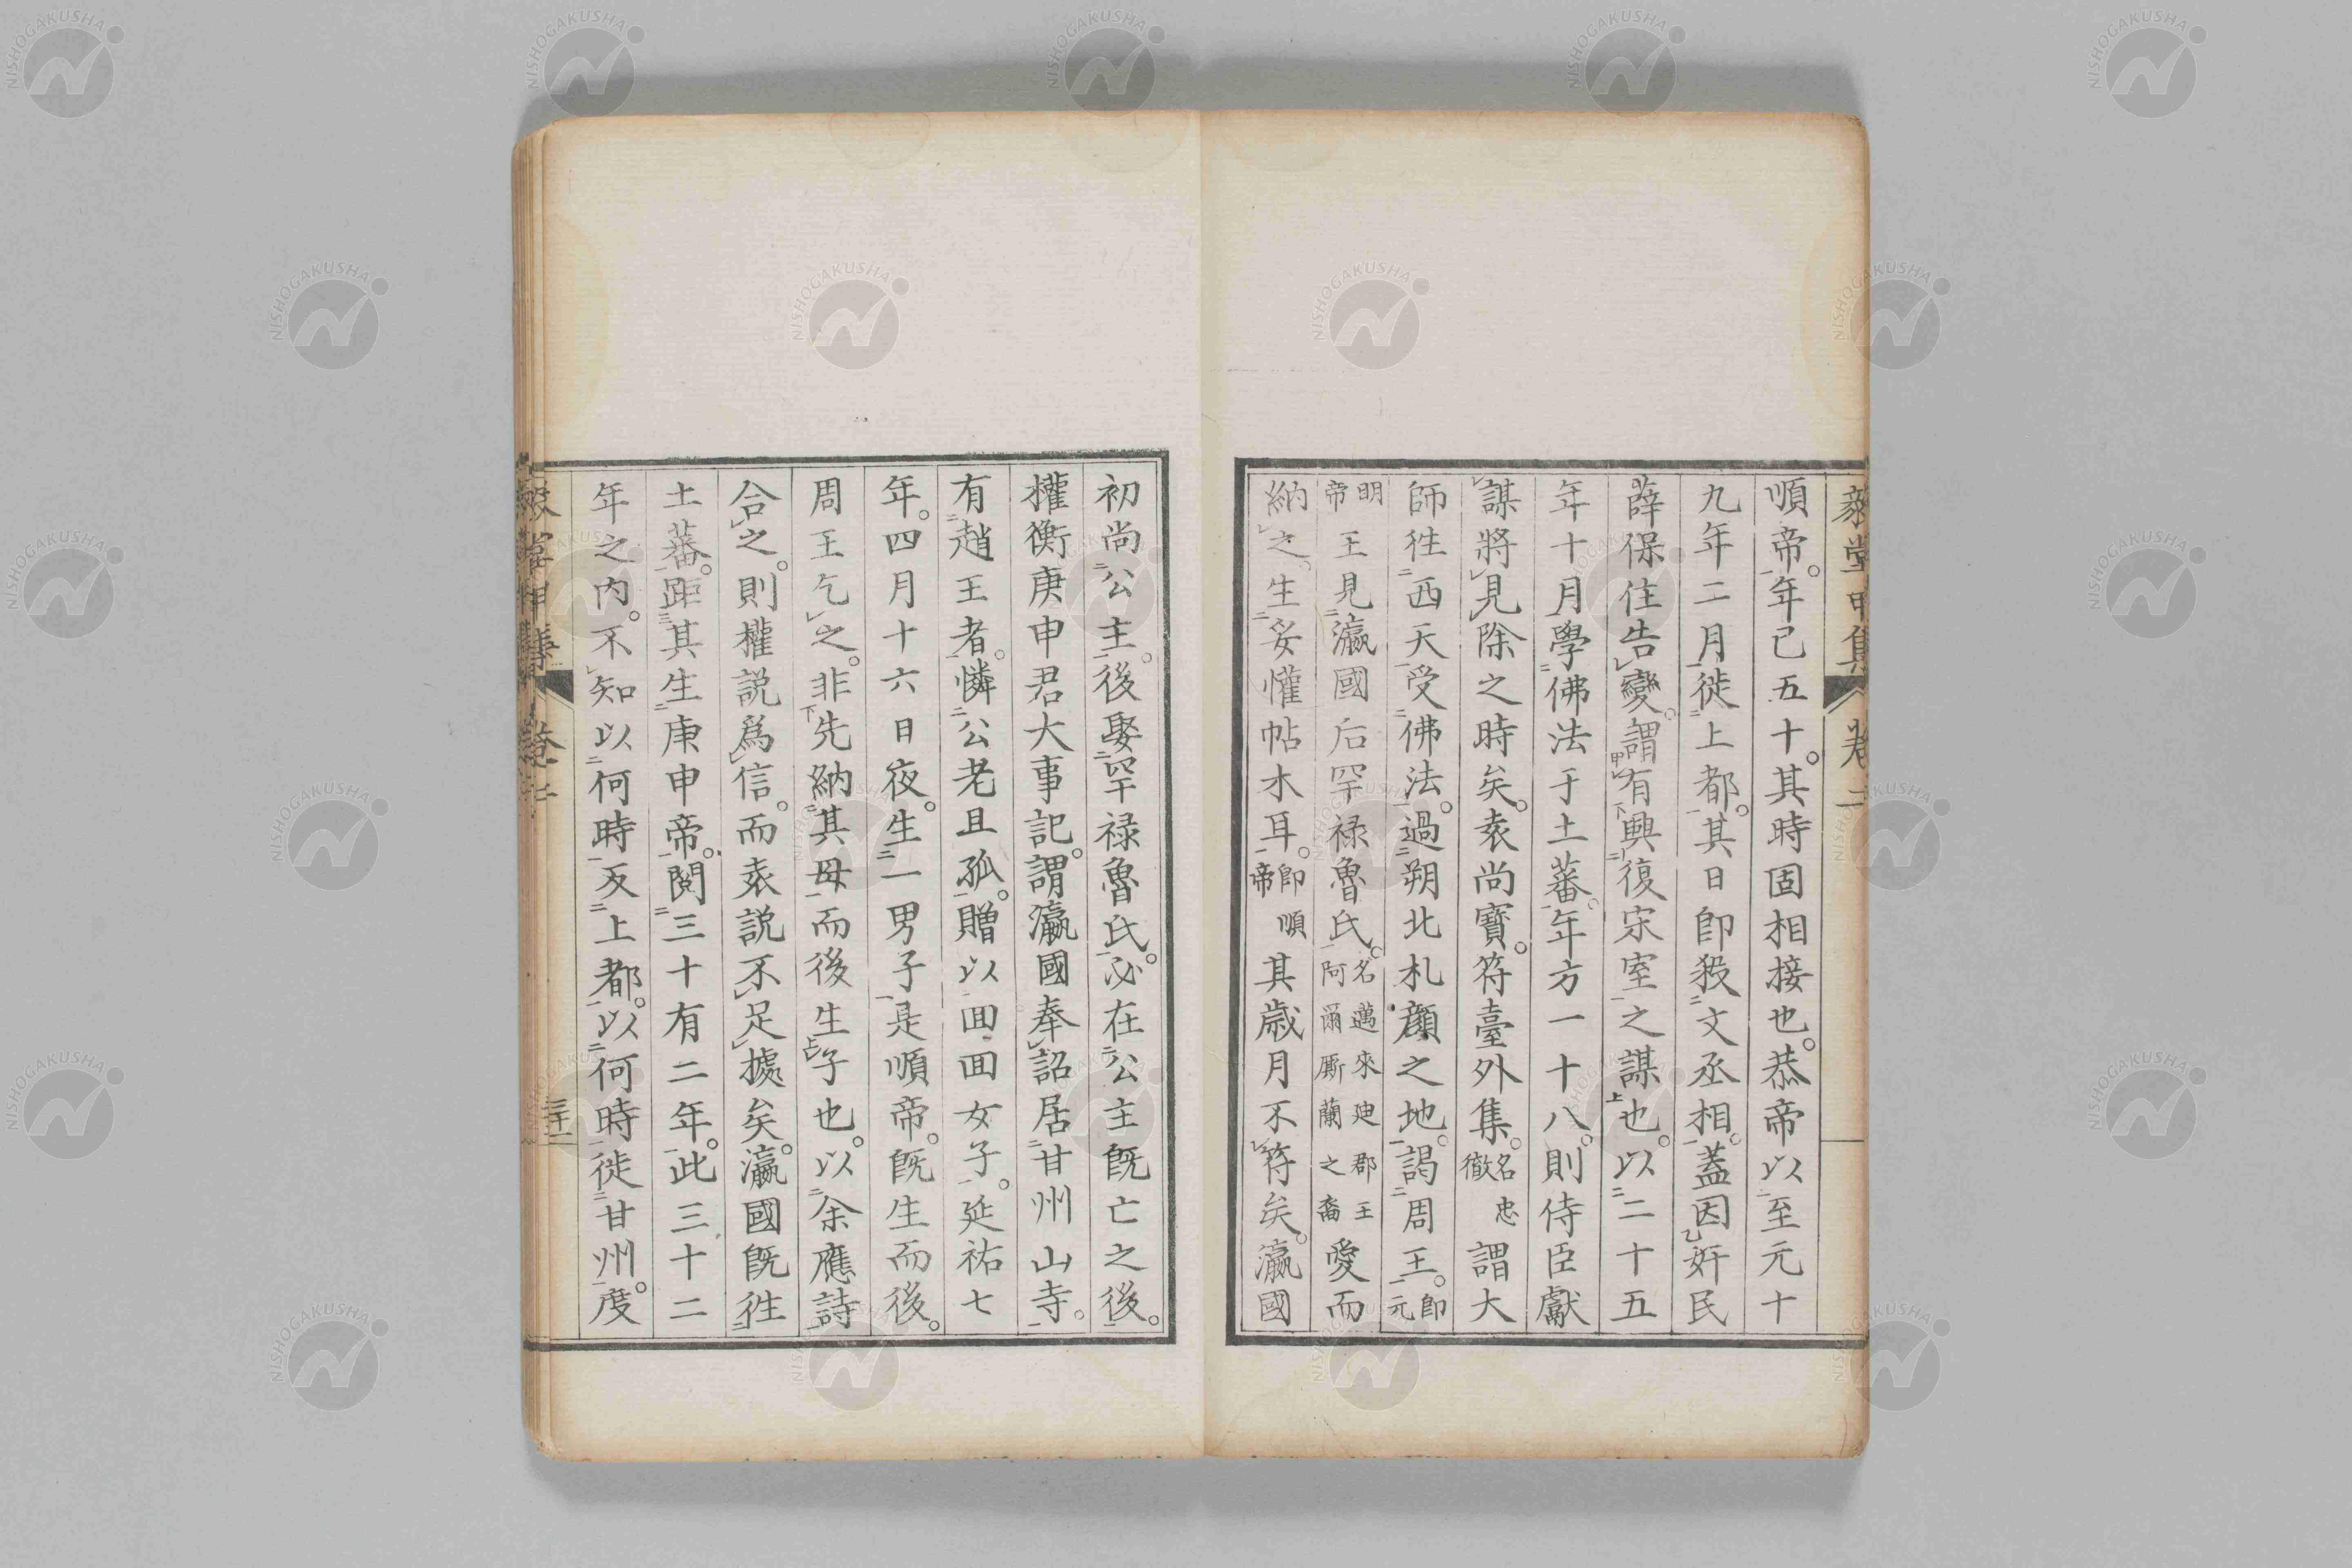 順帝。年已五十。其時固相接也。恭帝以至元十
九年二月。徙上都。其日卽殺文丞相。蓋因奸民
薛保住告變。謂有興復宋室之謀也。以二十五
年十月學佛法于土蕃。年方一十八。則侍臣獻
謀將見除之時矣。袁尚寶。符臺外集。名忠徹謂大
師徃西天受佛法。過朔北札顏之地。謁周王。卽元
明帝王見瀛國后罕祿魯氏。名邁來廸郡王阿爾厮蘭之裔愛而
納之。生妥懽帖木耳。卽順帝其歲月不符矣。瀛國
初尚公主。後娶罕祿魯氏。必在公主旣亡之後。
權衡庚申君大事記。謂瀛國奉詔居甘州山寺。
有趙王者。憐公老且孤。贈以囬囬女子。延祐七
年。四月十六日夜。生一男子。是順帝。旣生而後。
周王乞之。非先納其母而後生子也。以余應詩
合之。則權說爲信。而袁說不足據矣。瀛國旣徃
土蕃。距其生庚申帝。閱三十有二年。此三十二
年之內。不知以何時反上都。以何時徙甘州。度
毅堂甲集 卷二
三十一
NISHOGAKUSHA